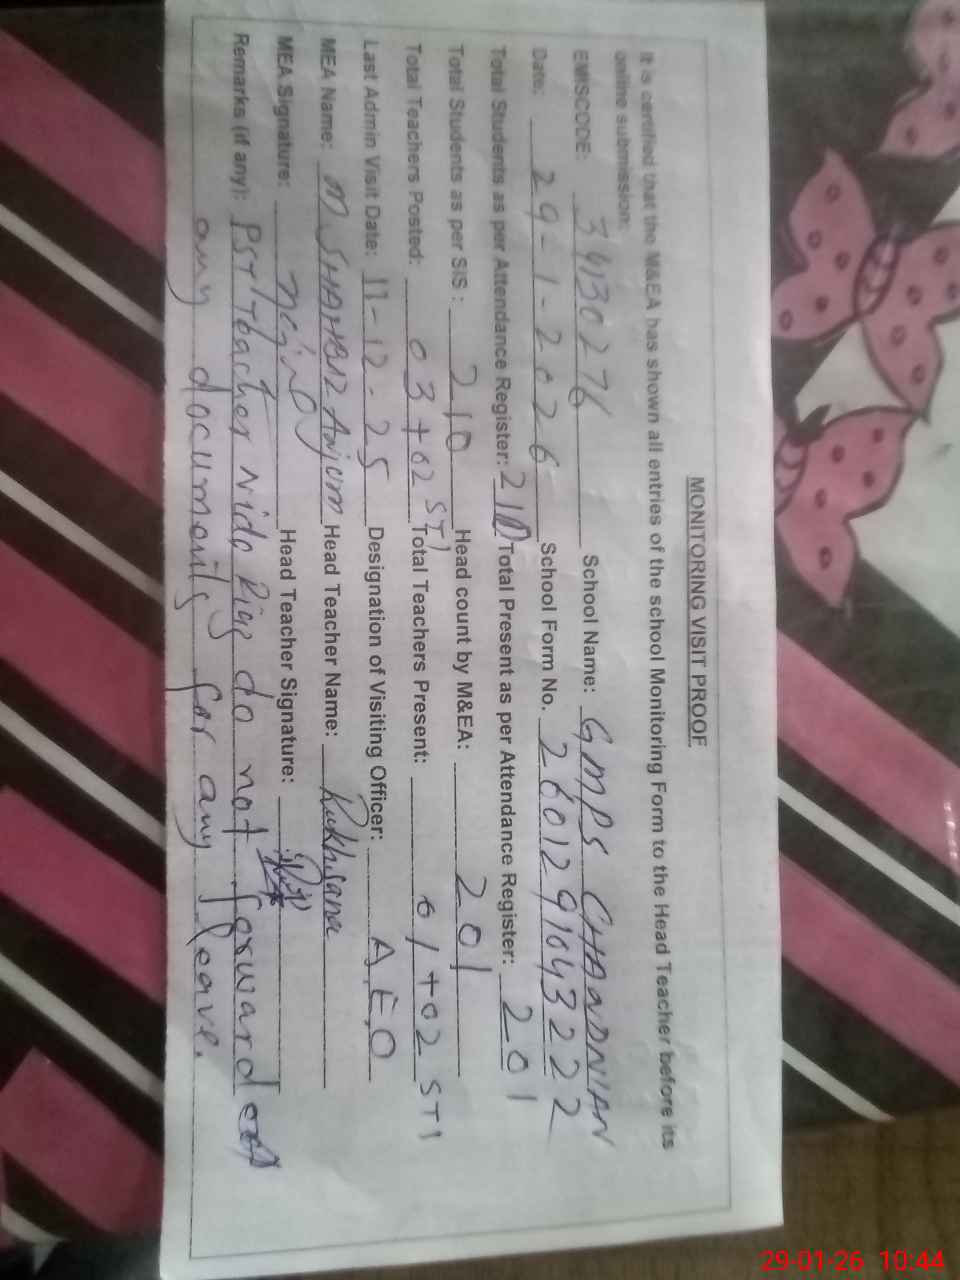 MONITORING VISIT PROOF
It is certified that the M&EA has shown all entries of the school Monitoring Form to the Head Teacher before its
online submission.
EMISCODE: 34130276 School Name: GMPS CHAADNIAN
Date: 29-1-2026 School Form No. 2601291043222
Total Students as per Attendance Register: 210 Total Present as per Attendance Register: 201
Total Students as per SIS: 210 Head count by M&EA: 201
Total Teachers Posted: 03+02 STI Total Teachers Present: 01+02 STI
Last Admin Visit Date: 11-12-25 Designation of Visiting Officer: A.E.O
MEA Name: M SHAHBAZ Anjum Head Teacher Name: Rukhsana
MEA Signature: Head Teacher Signature:
Remarks (if any): PST Teacher Nida do not forward
any documents for any leave.
29-01-26 10:44